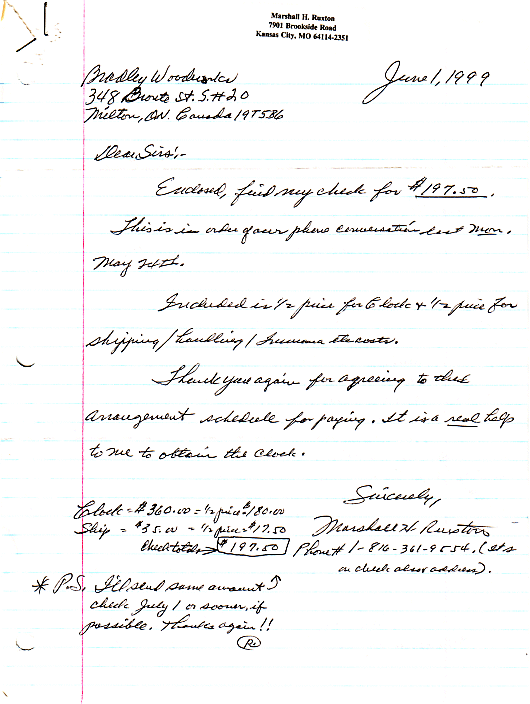 Marshall H. Ruxton
7901 Brookside Road
Kansas City, MO 64114-2351
June 1, 1999
Bradley Woodworks
348 Bronte St. S. #20
Milton, ON. Canada L9T5B6
Dear Sirs:-
Enclosed, find my check for $197.50.
This is in order of our phone conversation last Mon.
May 24th.
Included is 1/2 price for Clock & 1/2 price for
shipping/handling/insurance etc costs.
Thank you again for agreeing to this
arrangement schedule for paying. It is a real help
to me to obtain the Clock.
Sincerely,
Marshall H. Ruxton
Phone # 1-816-361-9554. (It's
on check also address).
Clock = $360.00 = 1/2 price = $180.00
Ship = $35.00 = 1/2 price = $17.50
Check total → $197.50
* P.S. I'll send same amount ↑
check July 1 or sooner, if
possible. Thanks again!!